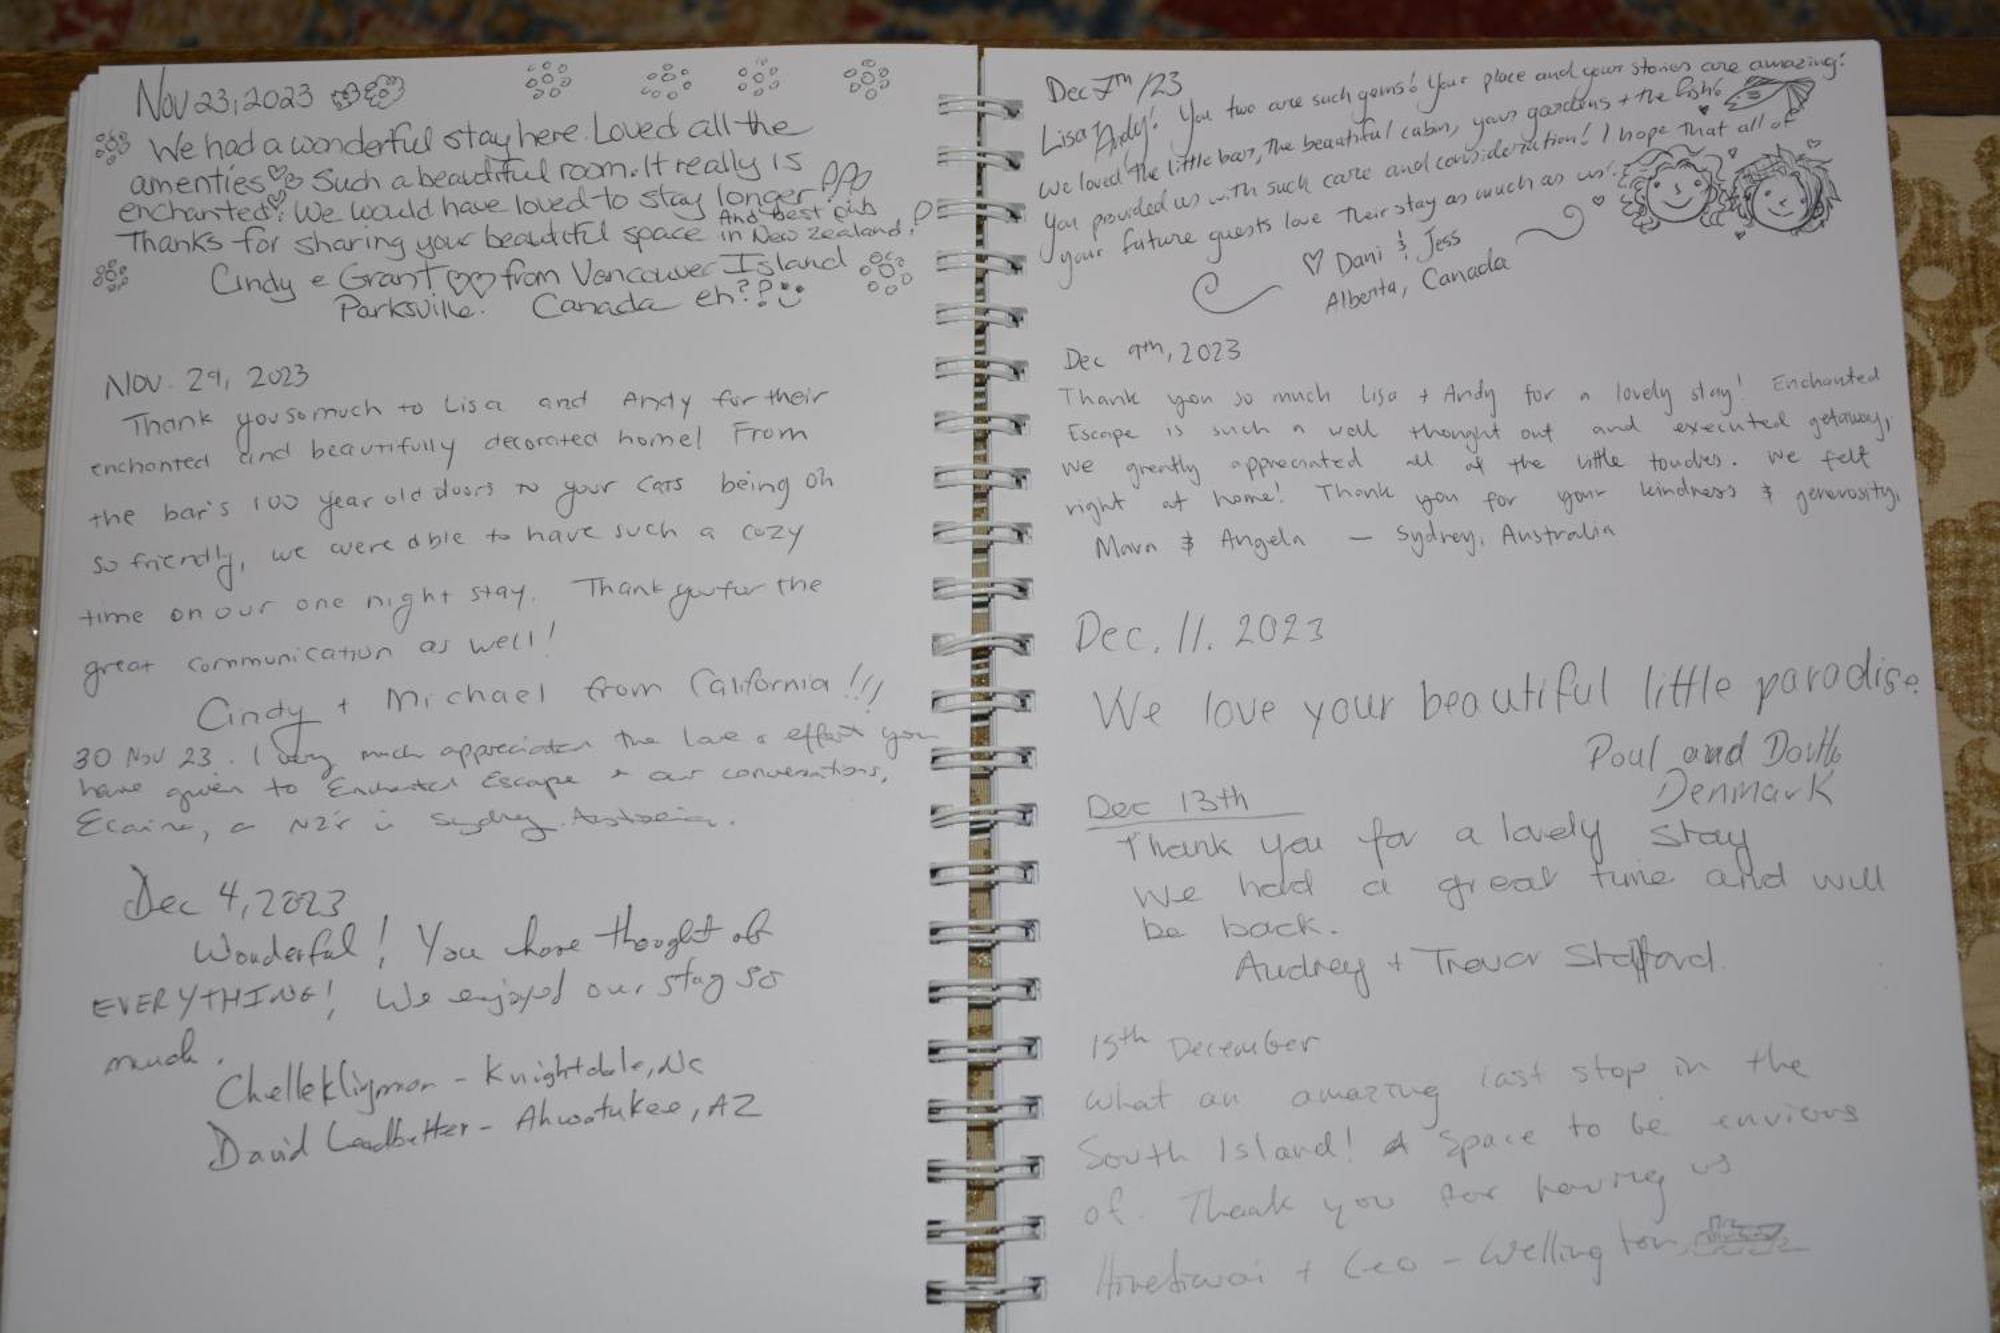 Nov 23, 2023
We had a wonderful stay here. Loved all the
amenties Such a beautiful room. It really is
enchanted! We would have loved to stay longer
And best pub
Thanks for sharing your beautiful space in New Zealand!
Cindy e Grant from Vancouver Island
Parksville. Canada eh??
Nov. 29, 2023
Thank you so much to Lisa and Andy for their
enchanted and beautifully decorated home! From
the bar's 100 year old doors to your cats being oh
so friendly, we were able to have such a cozy
time on our one night stay. Thank you for the
great communication as well!
Cindy + Michael from California!!!
30 Nov 23. I very much appreciated the love & effort you
have given to Enchanted Escape & our conversations,
a NZ'r in Sydney Australia.
Dec 4, 2023
Wonderful! You have thought of
EVERYTHING! We enjoyed our stay so
much.
Chelle Kligman - Knightdale, NC
David Leadbetter - Ahwatukee, AZ
Dec 7th /23
Lisa + Andy! You two are such gems! Your place and your stories are amazing!
We loved the little bar, the beautiful cabin, your gardens + the fish!
You provided us with such care and consideration! I hope that all of
your future guests love their stay as much as us!
Dani & Jess
Alberta, Canada
Dec 9th, 2023
Thank you so much Lisa + Andy for a lovely stay! Enchanted
Escape is such a well thought out and executed getaway,
we greatly appreciated all of the little touches. We felt
right at home! Thank you for your kindness & generosity,
& Angela — Sydney, Australia
Dec. 11. 2023
We love your beautiful little paradise.
Poul and Dorthe
Denmark
Dec 13th
Thank you for a lovely stay
We had a great time and will
be back.
Audrey + Trevor Stafford.
15th December
What an amazing last stop in the
South Island! A space to be envious
of. Thank you for having us
+ Leo - Wellington